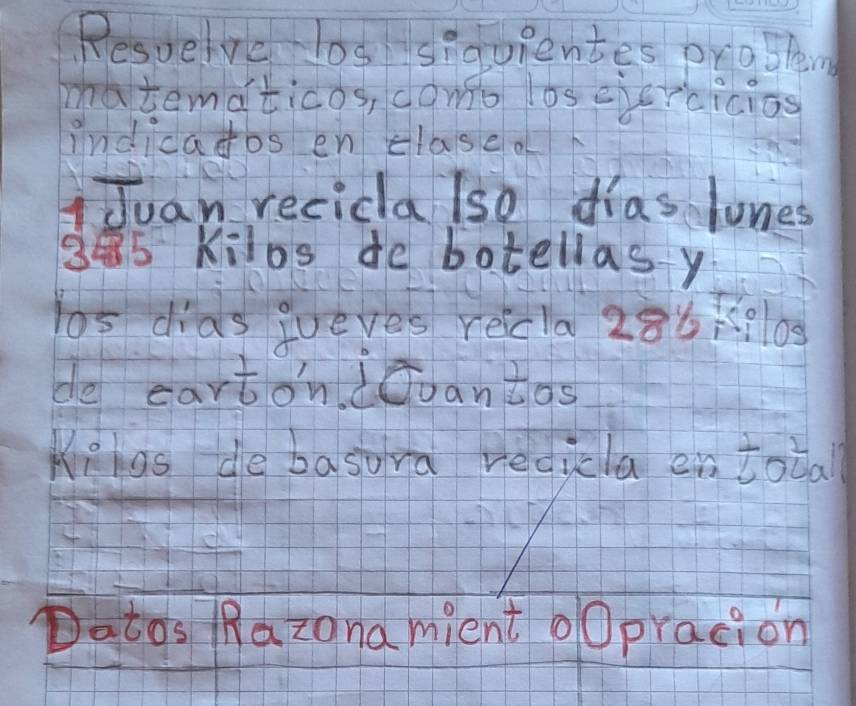 Resuelve los siguientes problem
matemáticos, como los ejercicios
indicados en clase.
1 Juan recicla lso días lunes
345 Kilos de botellas y
los días jueves reicla 286 Kilos
de cartón. ¿Cuantos
Kilos de basura recicla en total?
Datos Razonamiento Opración